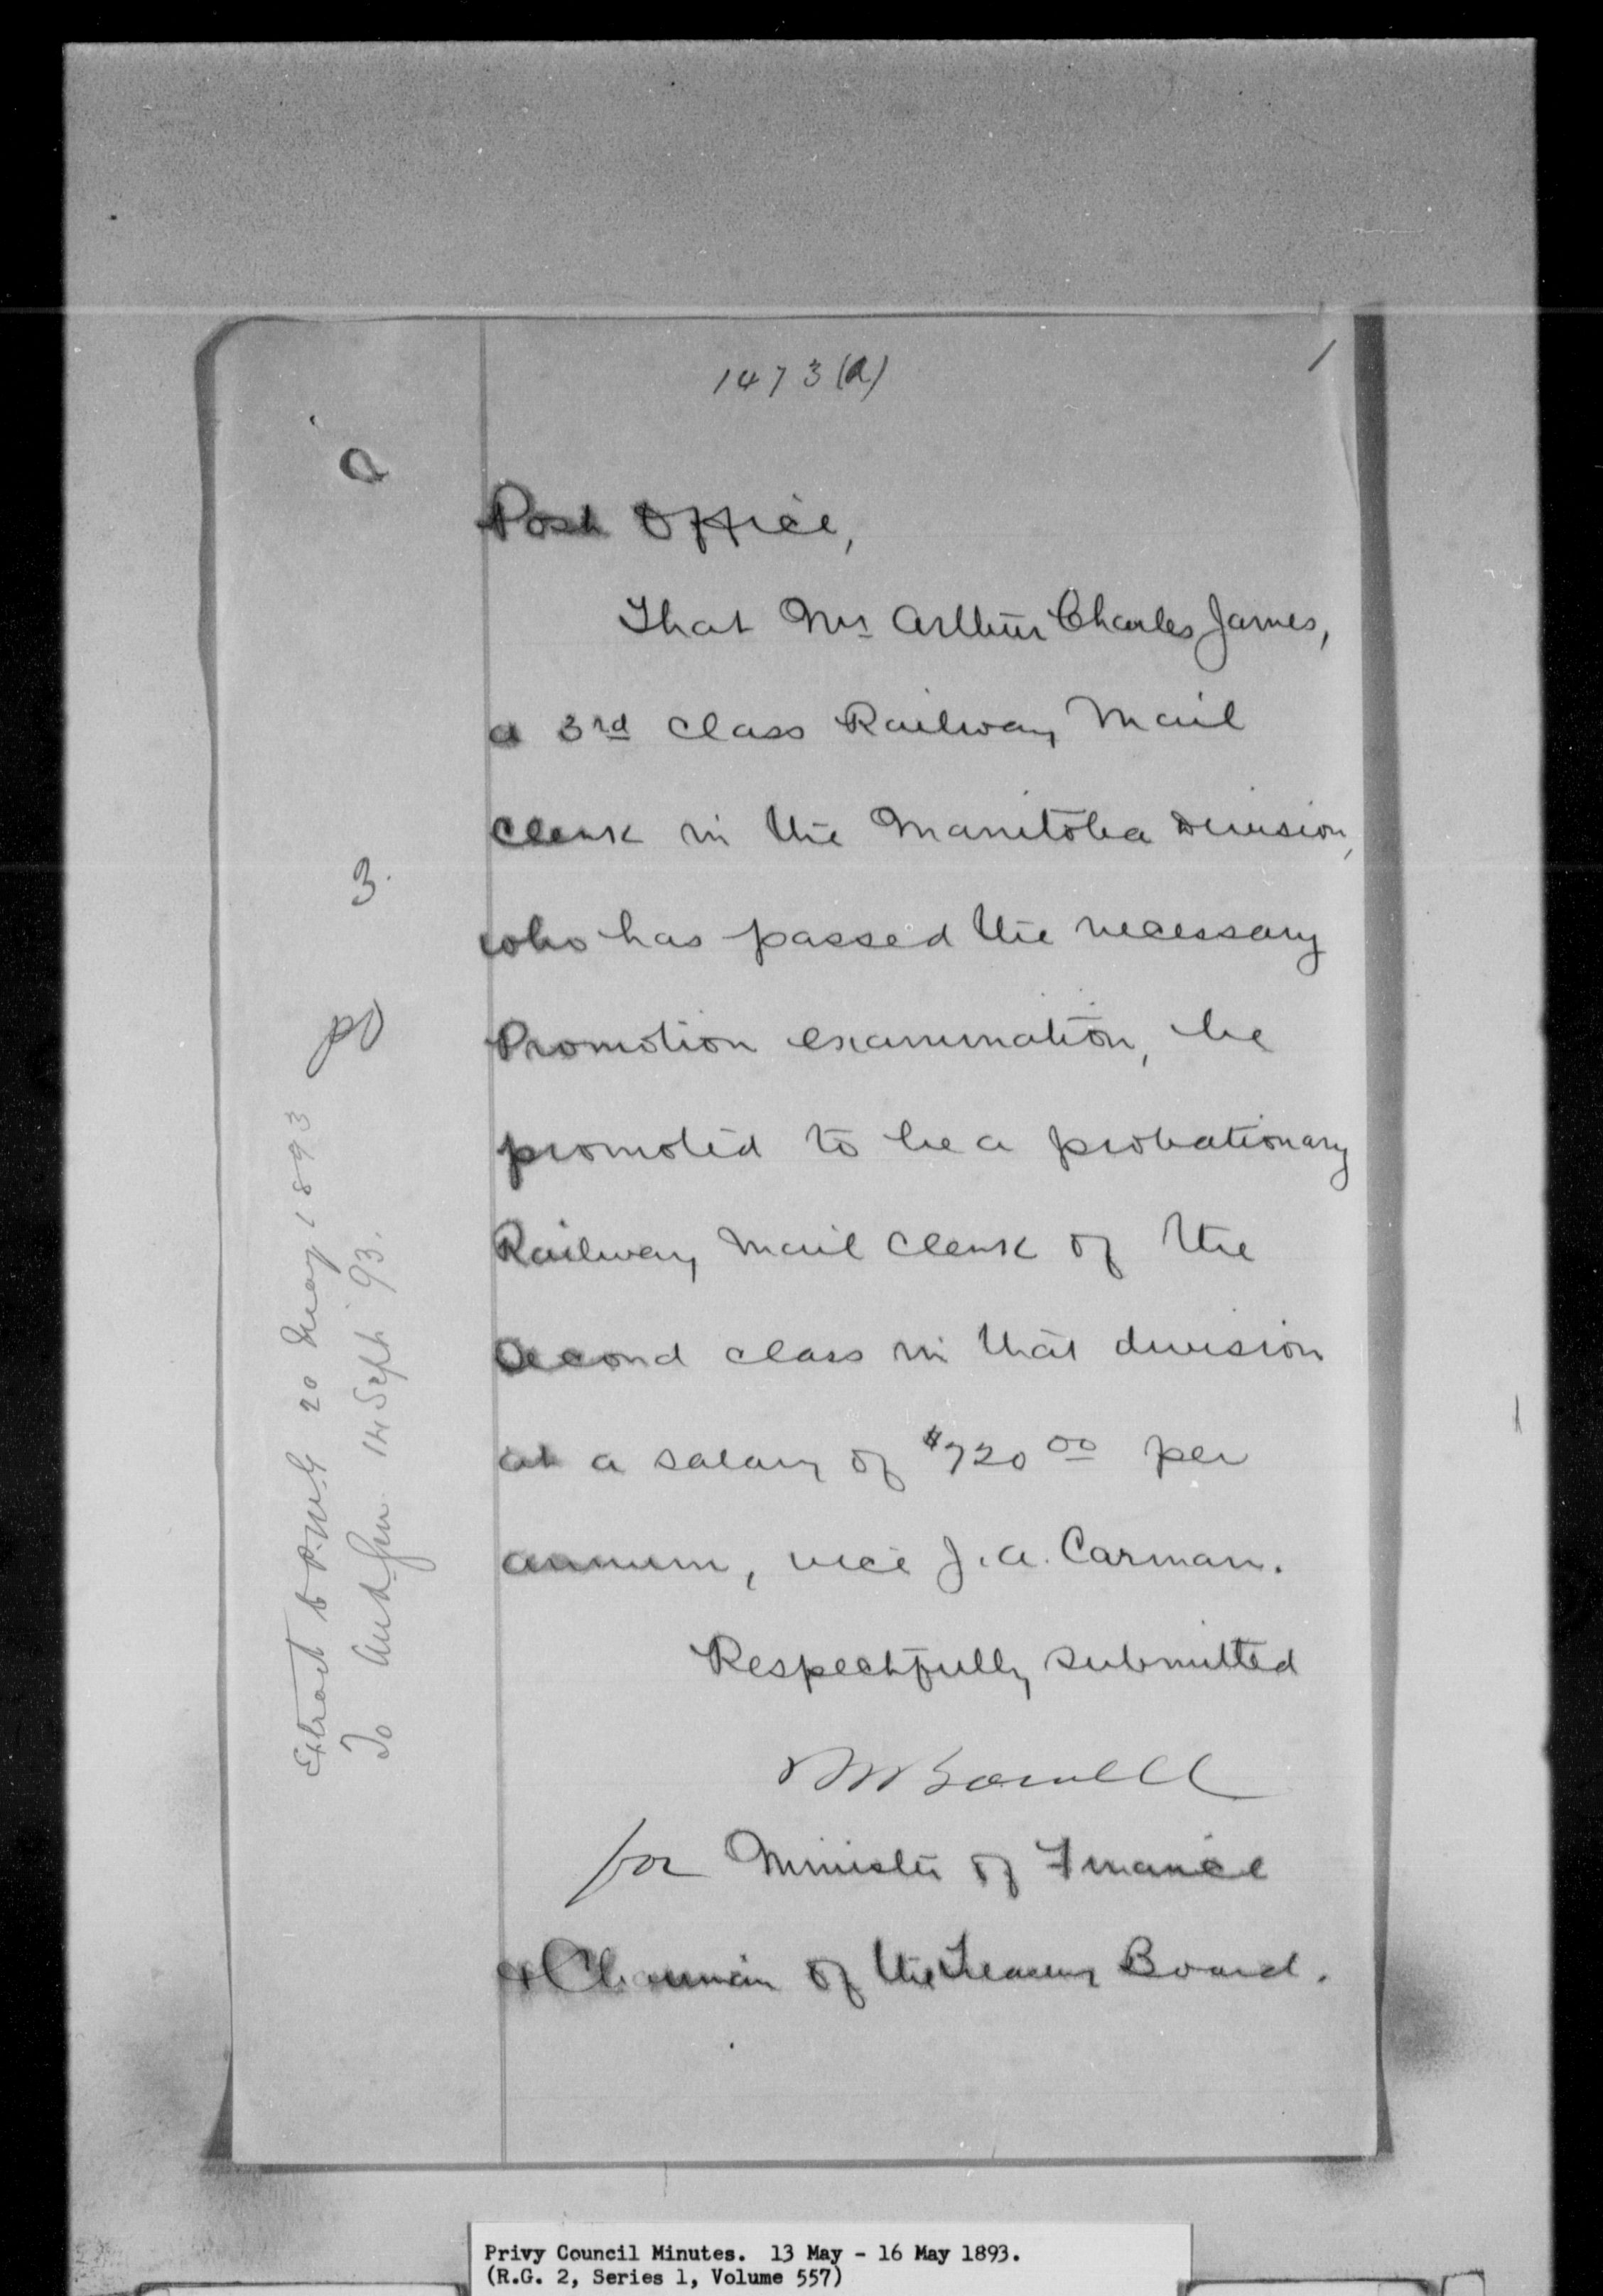 1473(a)
1
a
Post Office,
That Mr Arthur Charles James,
a 3rd class Railway Mail
Clerk in the Manitoba Division,
who has passed the necessary
Promotion examination, be
promoted to be a probationary
Railway Mail Clerk of the
Second class in that division
at a salary of $720 00 per
annum, vice J. A. Carman.
Respectfully submitted
MBowell
for Minister of Finance
& Chairman of the Treasury Board.
3.
PO
Extract to P.M.G 20 May 1893
To Aud Gen 14 Sept 93.
Privy Council Minutes. 13 May - 16 May 1893.
(R.G. 2, Series 1, Volume 557)